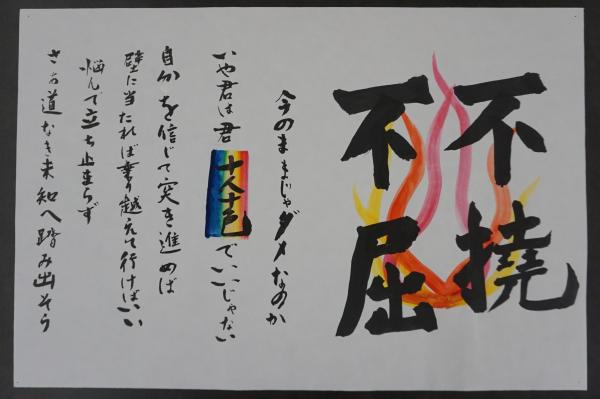 不撓
不屈
今のままじゃダメなのか
いや君は君十人十色でいいじゃない
自分を信じて突き進めば
壁に当たれば乗り越えて行けばいい
悩んで立ち止まらず
さあ道なき未知へ踏み出そう